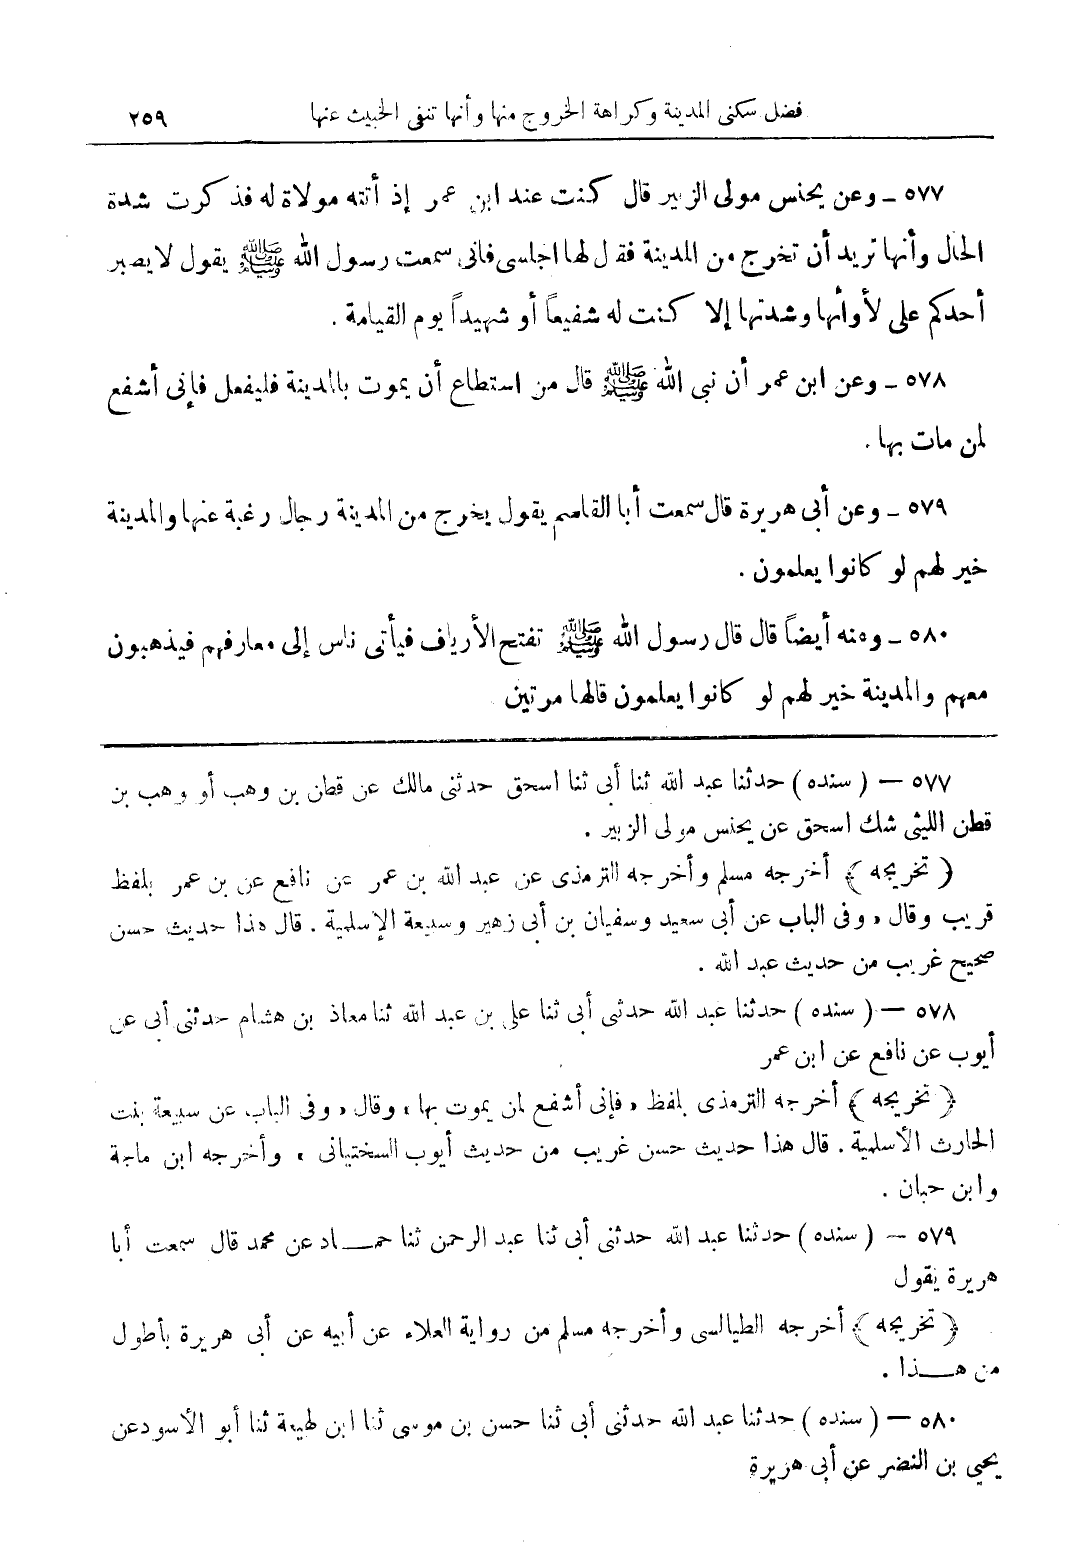 فضل سكنى المدينة وكراهة الخروج منها وأنها تنفى الخبيث عنها ٢٥٩
٥٧٧ ــ وعن يحنس مولى الزبير قال كنت عند ابن عمر إذ أتته مولاة له فذكرت شدة
الحال وأنها تريد أن تخرج من المدينة فقال لها اجلسى فانى سمعت رسول الله ﷺ يقول لا يصبر
أحدكم على لأوائها وشدتها إلا كنت له شفيعاً أو شهيداً يوم القيامة .
٥٧٨ ــ وعن ابن عمر أن نبى الله ﷺ قال من استطاع أن يموت بالمدينة فليفعل فإنى أشفع
لمن مات بها .
٥٧٩ ــ وعن أبى هريرة قال سمعت أبا القاسم يقول يخرج من المدينة رجال رغبة عنها والمدينة
خير لهم لو كانوا يعلمون .
٥٨٠ ــ ومنه أيضاً قال قال رسول الله ﷺ تفتح الأرياف فيأتى ناس إلى معارفهم فيذهبون
معهم والمدينة خير لهم لو كانوا يعلمون قالها مرتين
٥٧٧ — ( سنده ) حدثنا عبد الله ثنا أبى ثنا اسحق حدثنى مالك عن قطن بن وهب أو وهب بن
قطن الليثى شك اسحق عن يحنس مولى الزبير .
﴿ تخريجه ﴾ أخرجه مسلم وأخرجه الترمذى عن عبد الله بن عمر عن نافع عن بن عمر بلفظ
قريب وقال « وفى الباب عن أبى سعيد وسفيان بن أبى زهير وسبيعة الإسلمية . قال هذا حديث حسن
صحيح غريب من حديث عبد الله .
٥٧٨ — ( سنده ) حدثنا عبد الله حدثى أبى ثنا على بن عبد الله ثنا معاذ بن هشام حدثنى أبى عن
أيوب عن نافع عن ابن عمر
﴿ تخريجه ﴾ أخرجه الترمذى بلفظ « فإنى أشفع لمن يموت بها » وقال « وفى الباب عن سبيعة بنت
الحارث الأسلمية . قال هذا حديث حسن غريب من حديث أيوب السختيانى » وأخرجه ابن ماجة
وابن حبان .
٥٧٩ — ( سنده ) حدثنا عبد الله حدثنى أبى ثنا عبد الرحمن ثنا حمـــاد عن محمد قال سمعت أبا
هريرة يقول
﴿ تخريجه ﴾ أخرجه الطيالسى وأخرجه مسلم من رواية العلاء عن أبيه عن أبى هريرة بأطول
من هـــذا .
٥٨٠ — ( سنده ) حدثنا عبد الله حدثنى أبى ثنا حسن بن موسى ثنا ابن لهيعة ثنا أبو الأسود عن
يحيى بن النضر عن أبى هريرة